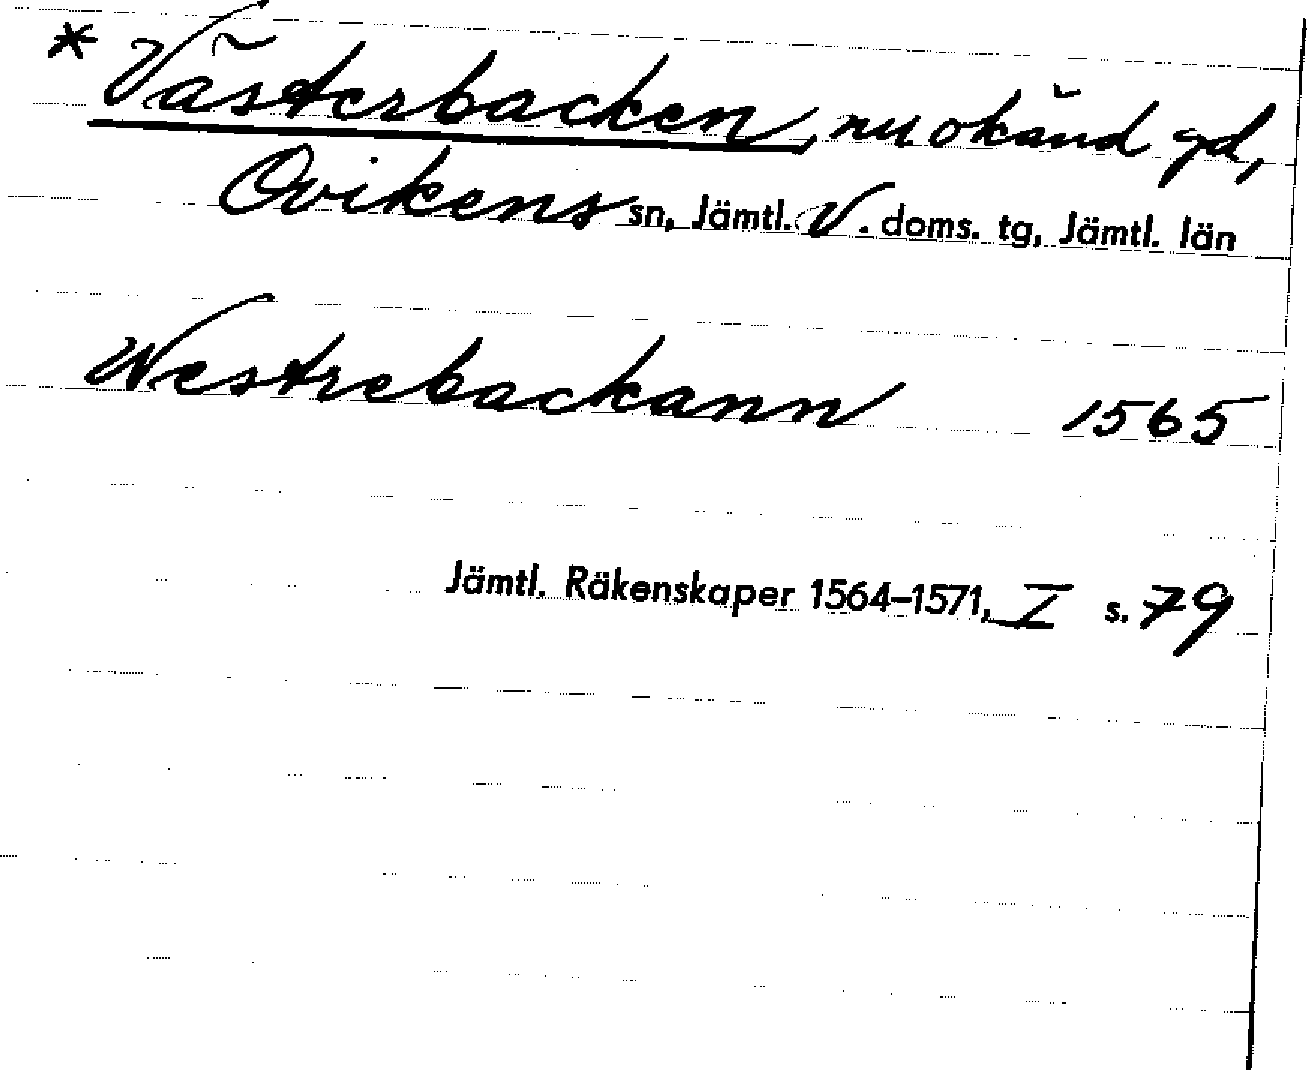 * Västerbacken, nu okänd gd,
Ovikens sn, Jämtl. V. doms. tg, Jämtl. län
Westrebackann 1565
Jämtl. Räkenskaper 1564–1571, I s. 79